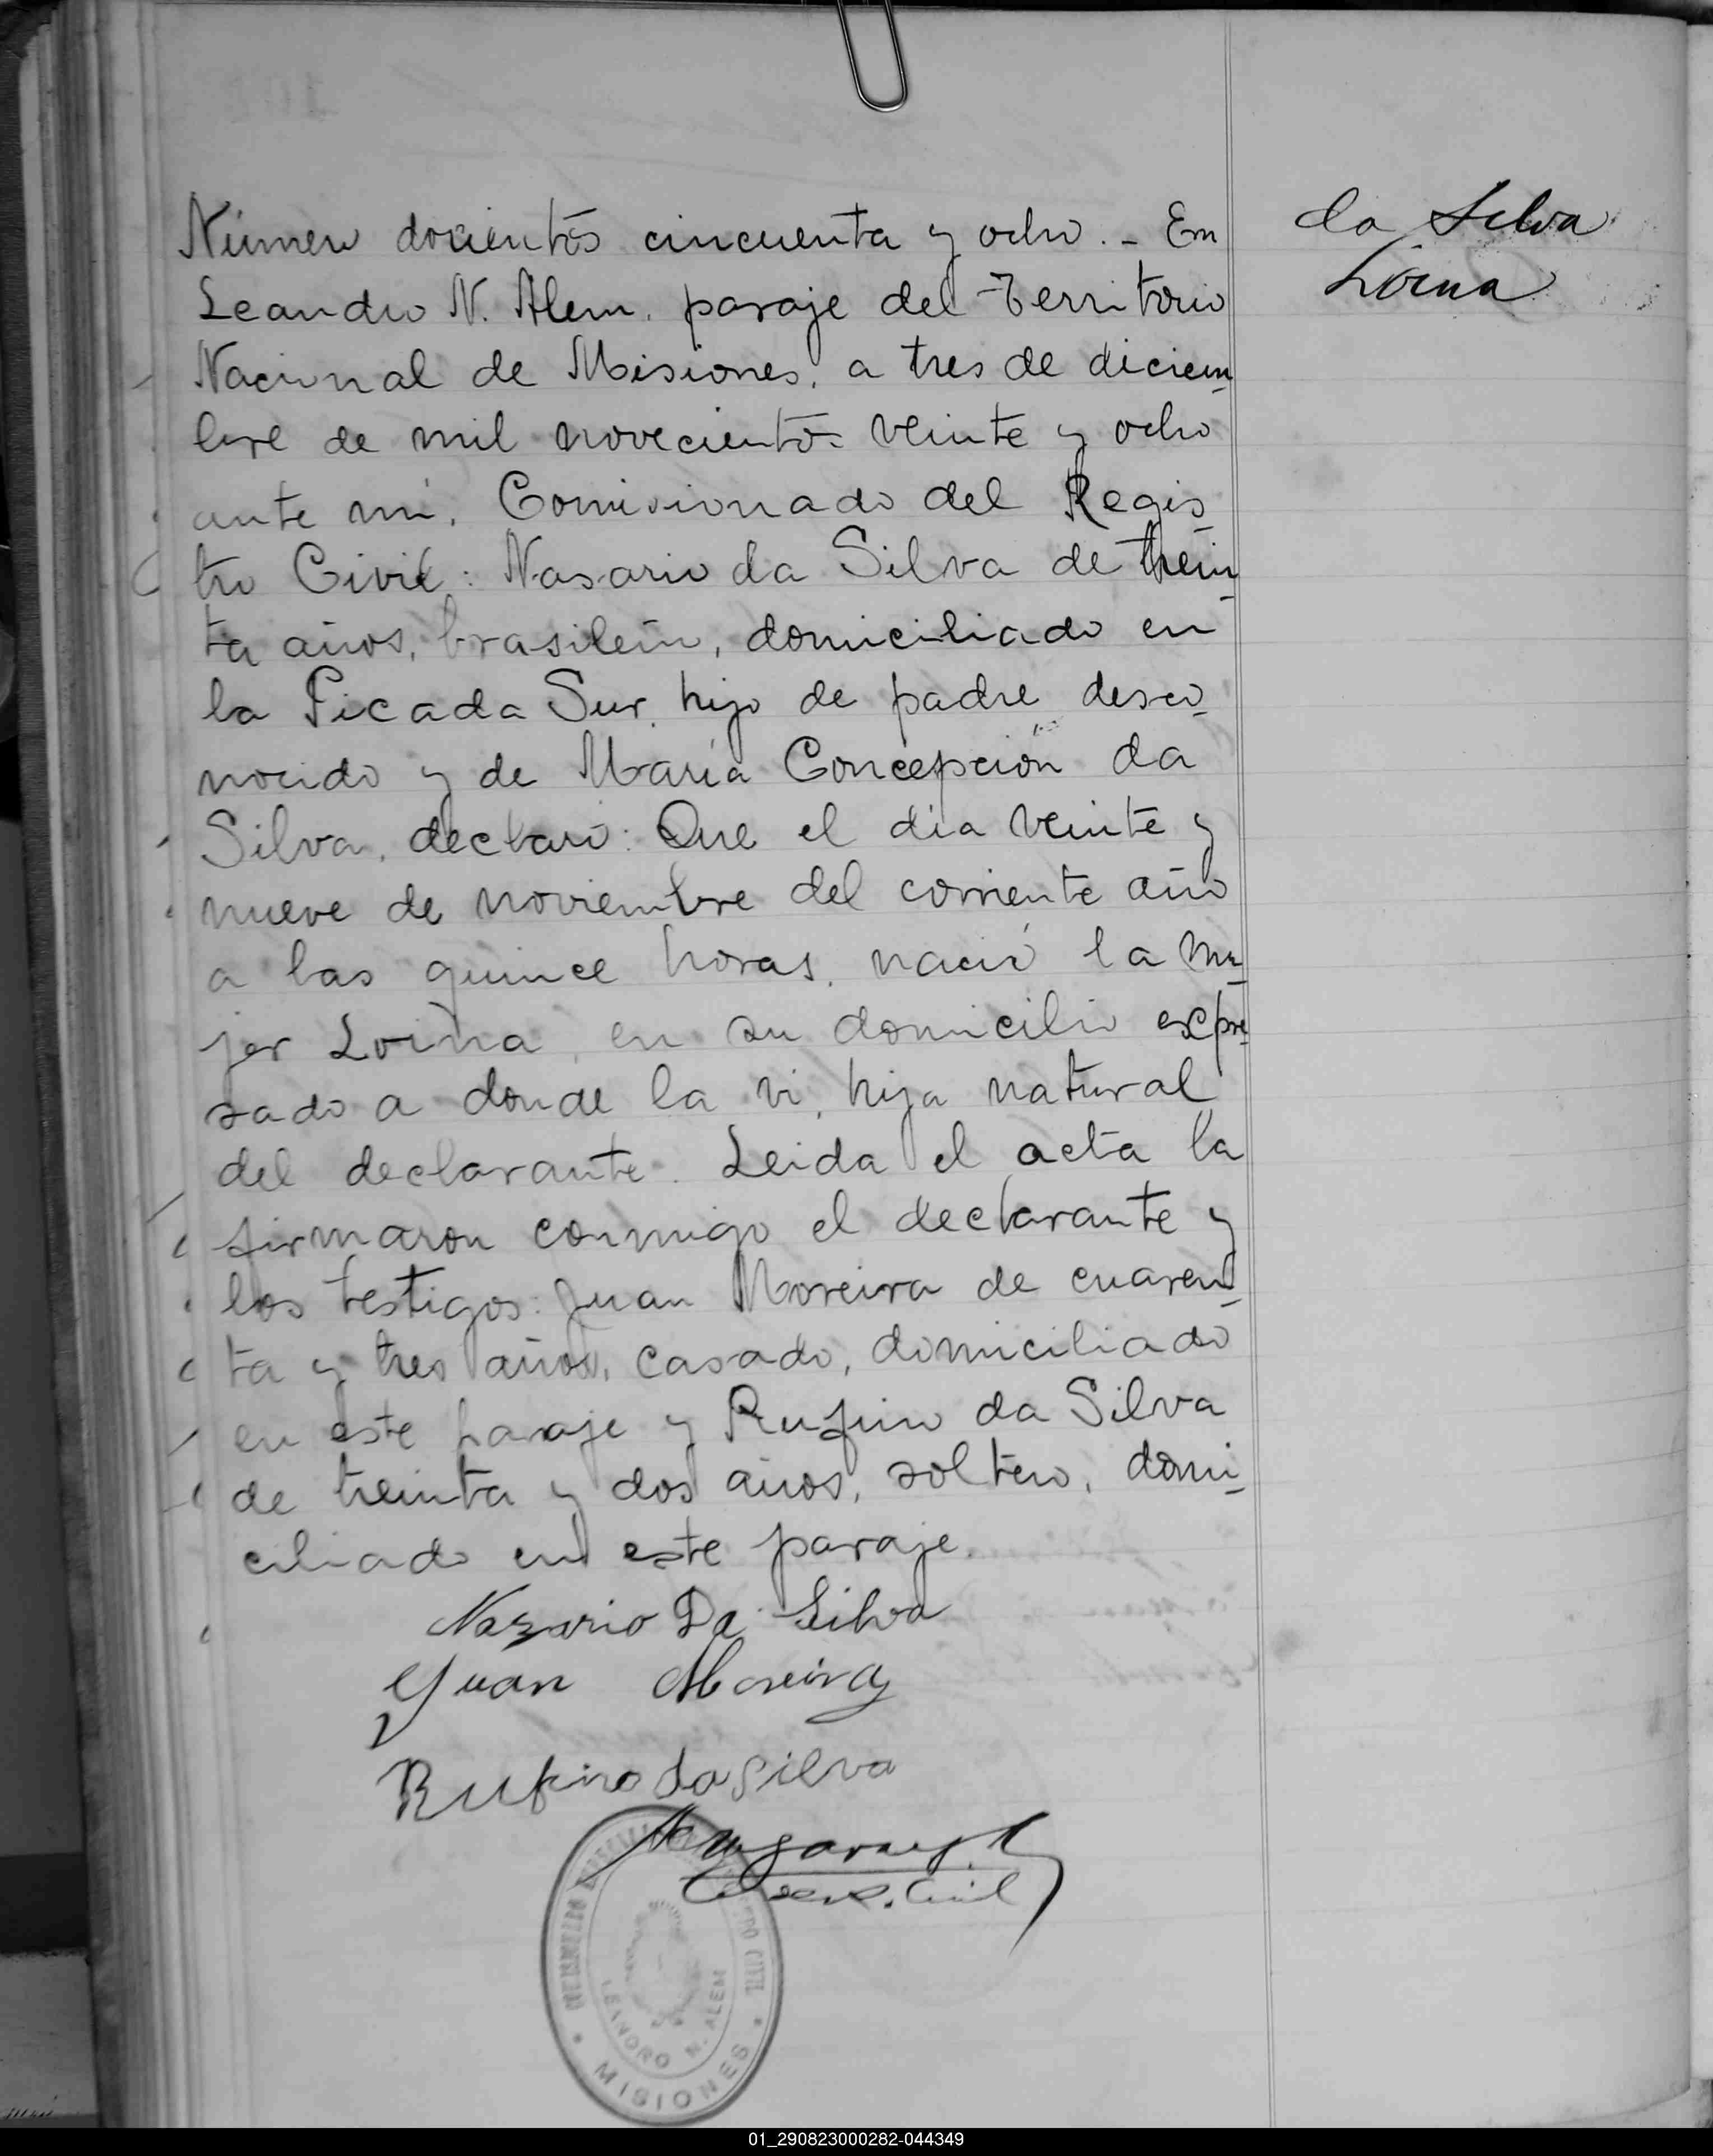 da Silva
Loina
Número docientos cincuenta y ocho. - En
Leandro N. Alem, paraje del Territorio
Nacional de Misiones, a tres de diciem_
bre de mil novecientos veinte y ocho
ante mi, Comisionado del Regis_
tro Civil: Nasario da Silva de trein_
ta años, brasilero, domiciliado en
la Picada Sur, hijo de padre desco_
nocido y de María Concepción da
Silva, declaró: Que el dia veinte y
nueve de noviembre del corriente año
a las quince horas, nació la mu_
jer Loina, en su domicilio expre_
sado a donde la vi, hija natural
del declarante. Leida el acta la
firmaron conmigo el declarante y
los testigos: Juan Moreira de cuaren_
ta y tres años, casado, domiciliado
en este paraje y Rufino da Silva
de treinta y dos años, soltero, domi_
ciliado en este paraje.
Nazario Da Silva
Juan Moreira
Rufino da Silva
Civil
LEANDRO N. ALEM
* MISIONES *
01_290823000282-044349